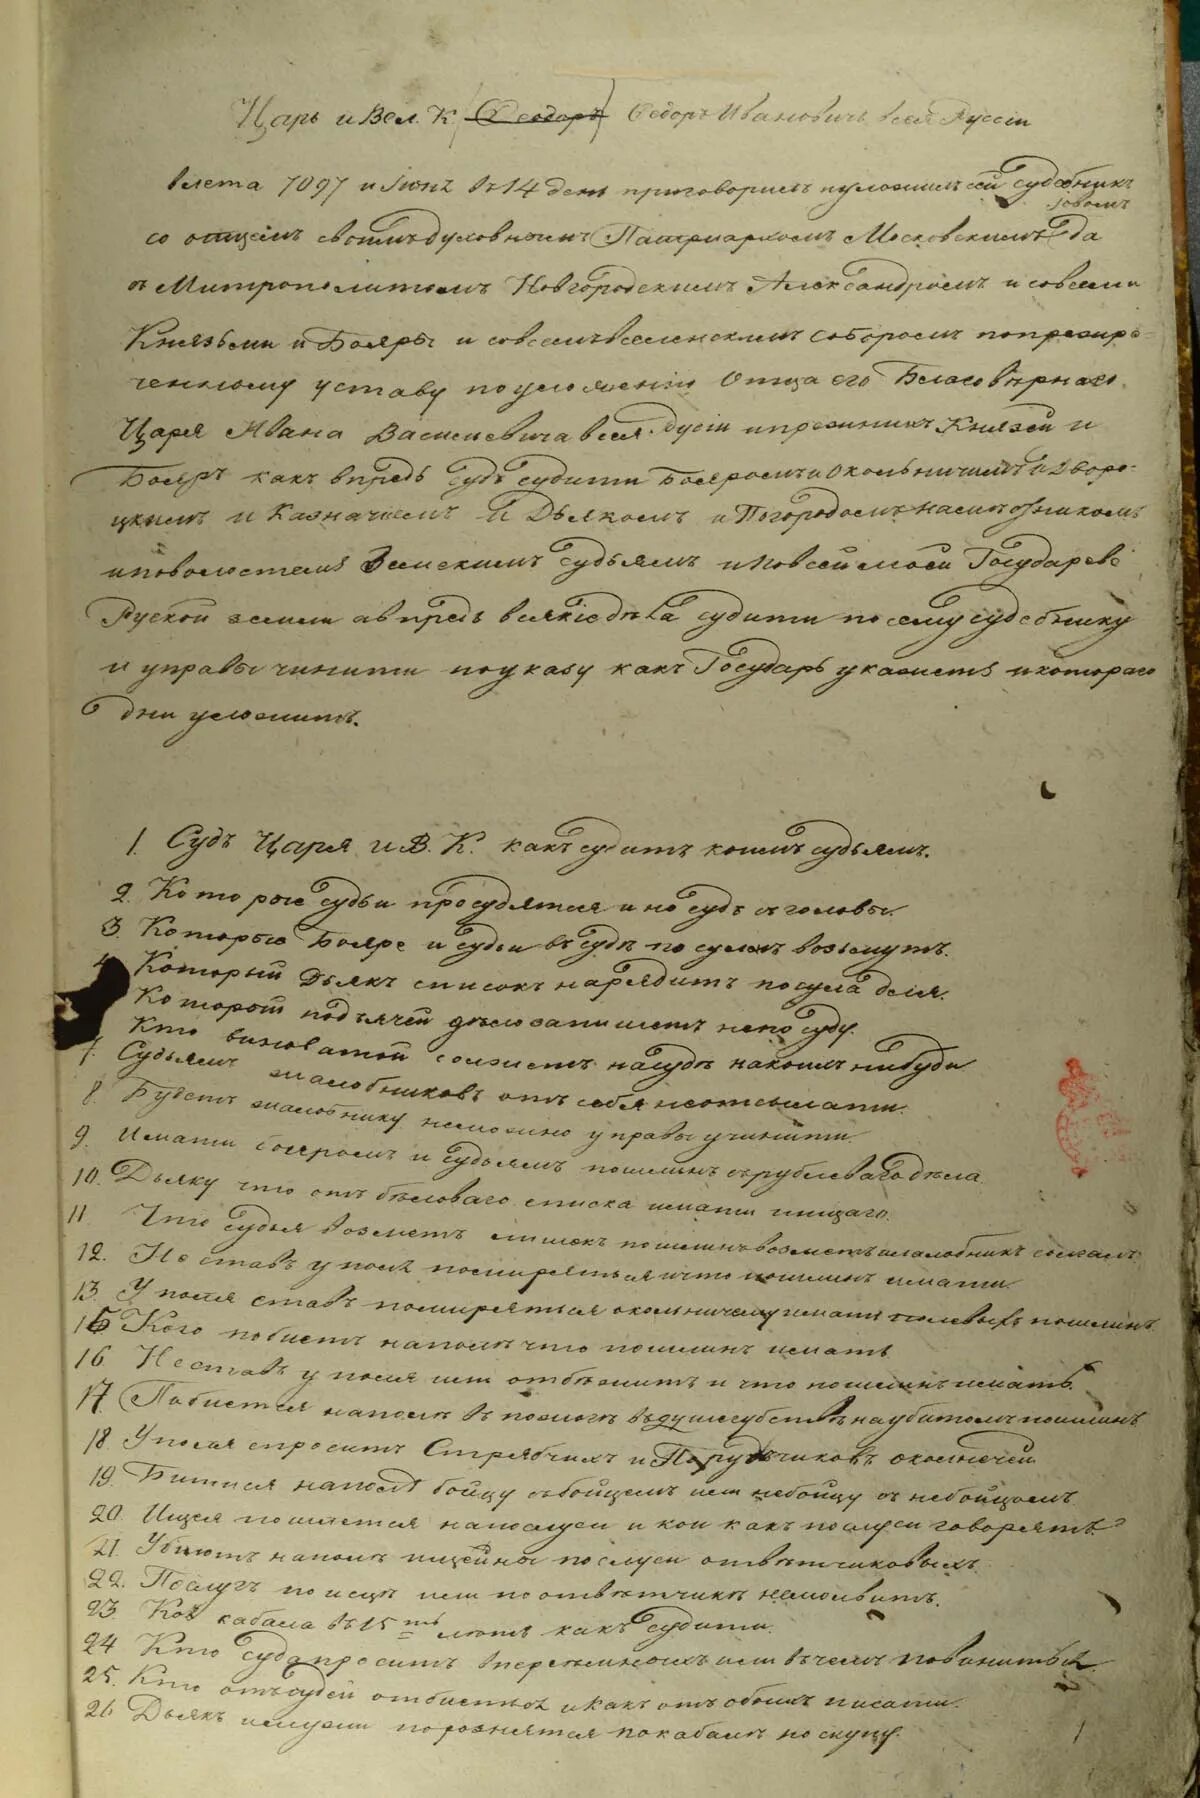 Царь и Вел. К. (Ѳеодоръ) Ѳедоръ Ивановичь всея Руссіи
влета 7097 и Іюнѣ въ 14 день приговорилъ и уложилъ сей судебникъ
Іовомъ
со отцемъ своимъ духовнымъ (Патріархомъ Московскимъ) да
съ Митрополитомъ Новгородскимъ Александромъ и совсеми
Князьями и Бояры и совсемъ вселенскимъ соборомъ попрежиро-
ченному уставу поуложенію Отца его Благовѣрнаго
Царя Ивана Васильевича всея Русіи и прежнихъ Князей и
Бояръ какъ впредь судъ судити Бояромъ и Окольничимъ и Дворе-
цкимъ и Казначеемъ и Дьякомъ и Погородомъ намѣстникомъ
и поволостемъ Земскимъ судьямъ и по всей моей Государеве
Руской земли а впредь всякіе дѣла судити по сему судебнику
и управы чинити по указу какъ Государь укажетъ и котораго
дни уложитъ.
1. Судъ Царя и В. К. какъ судитъ коимъ судьямъ.
2. Которые судьи просудятся и но судъ съ головы.
3. Которые Бояре и судьи въ судѣ посулъ возьмутъ.
4. Который Дьякъ списокъ нарядитъ посула для.
Которой подъячей дѣло запишетъ не по суду.
Кто виноватой солжетъ на судѣ накоимъ нибуди
7. Судьямъ жалобниковъ отъ себя неотсылати.
8. Будетъ жалобнику неможно управы учинити.
9. Имати бояромъ и судьямъ пошлинъ съ рублеваго дѣла.
10. Дьяку что отъ бѣловаго списка имати пищаго.
11. Что судья возметъ лишекъ пошлинъ возметъ и жалобникъ солжетъ.
12. Не ставъ у поля помирятьсяи что пошлинъ имати.
13. У поля ставъ помиряться окольничему имати полевыхъ пошлинъ.
15 Кого побиетъ на полѣ что пошлинъ имать
16. Не ставъ у поля или отбѣжитъ и что пошлинъ имать.
17 Побиется на полѣ въ пожогѣ въ душегубствѣ на убитомъ пошлинъ
18 У поля спроситъ Стряпчихъ и Порутчиковъ околничей
19. Битися на полѣ бойцу съ бойцемъ или небойцу съ небойцомъ
20. Ищея пошлется на послуси и кои какъ послуси говорятъ.
21. Убиютъ на полѣ ищейны послуси отвѣтчиковыхъ.
22. Послухъ по исцѣ или по отвѣтчикѣ немолвитъ.
23. Коя кабала въ 15ть лѣтъ какъ судити.
24 Кто суда проситъ впереженныхъ или въ чемъ повинитъся
25. Кто отъ судей отбиется и какъ отъ обоихъ писати.
26 Дьякъ и послуси порознятся по кабалѣ по скупу.
1